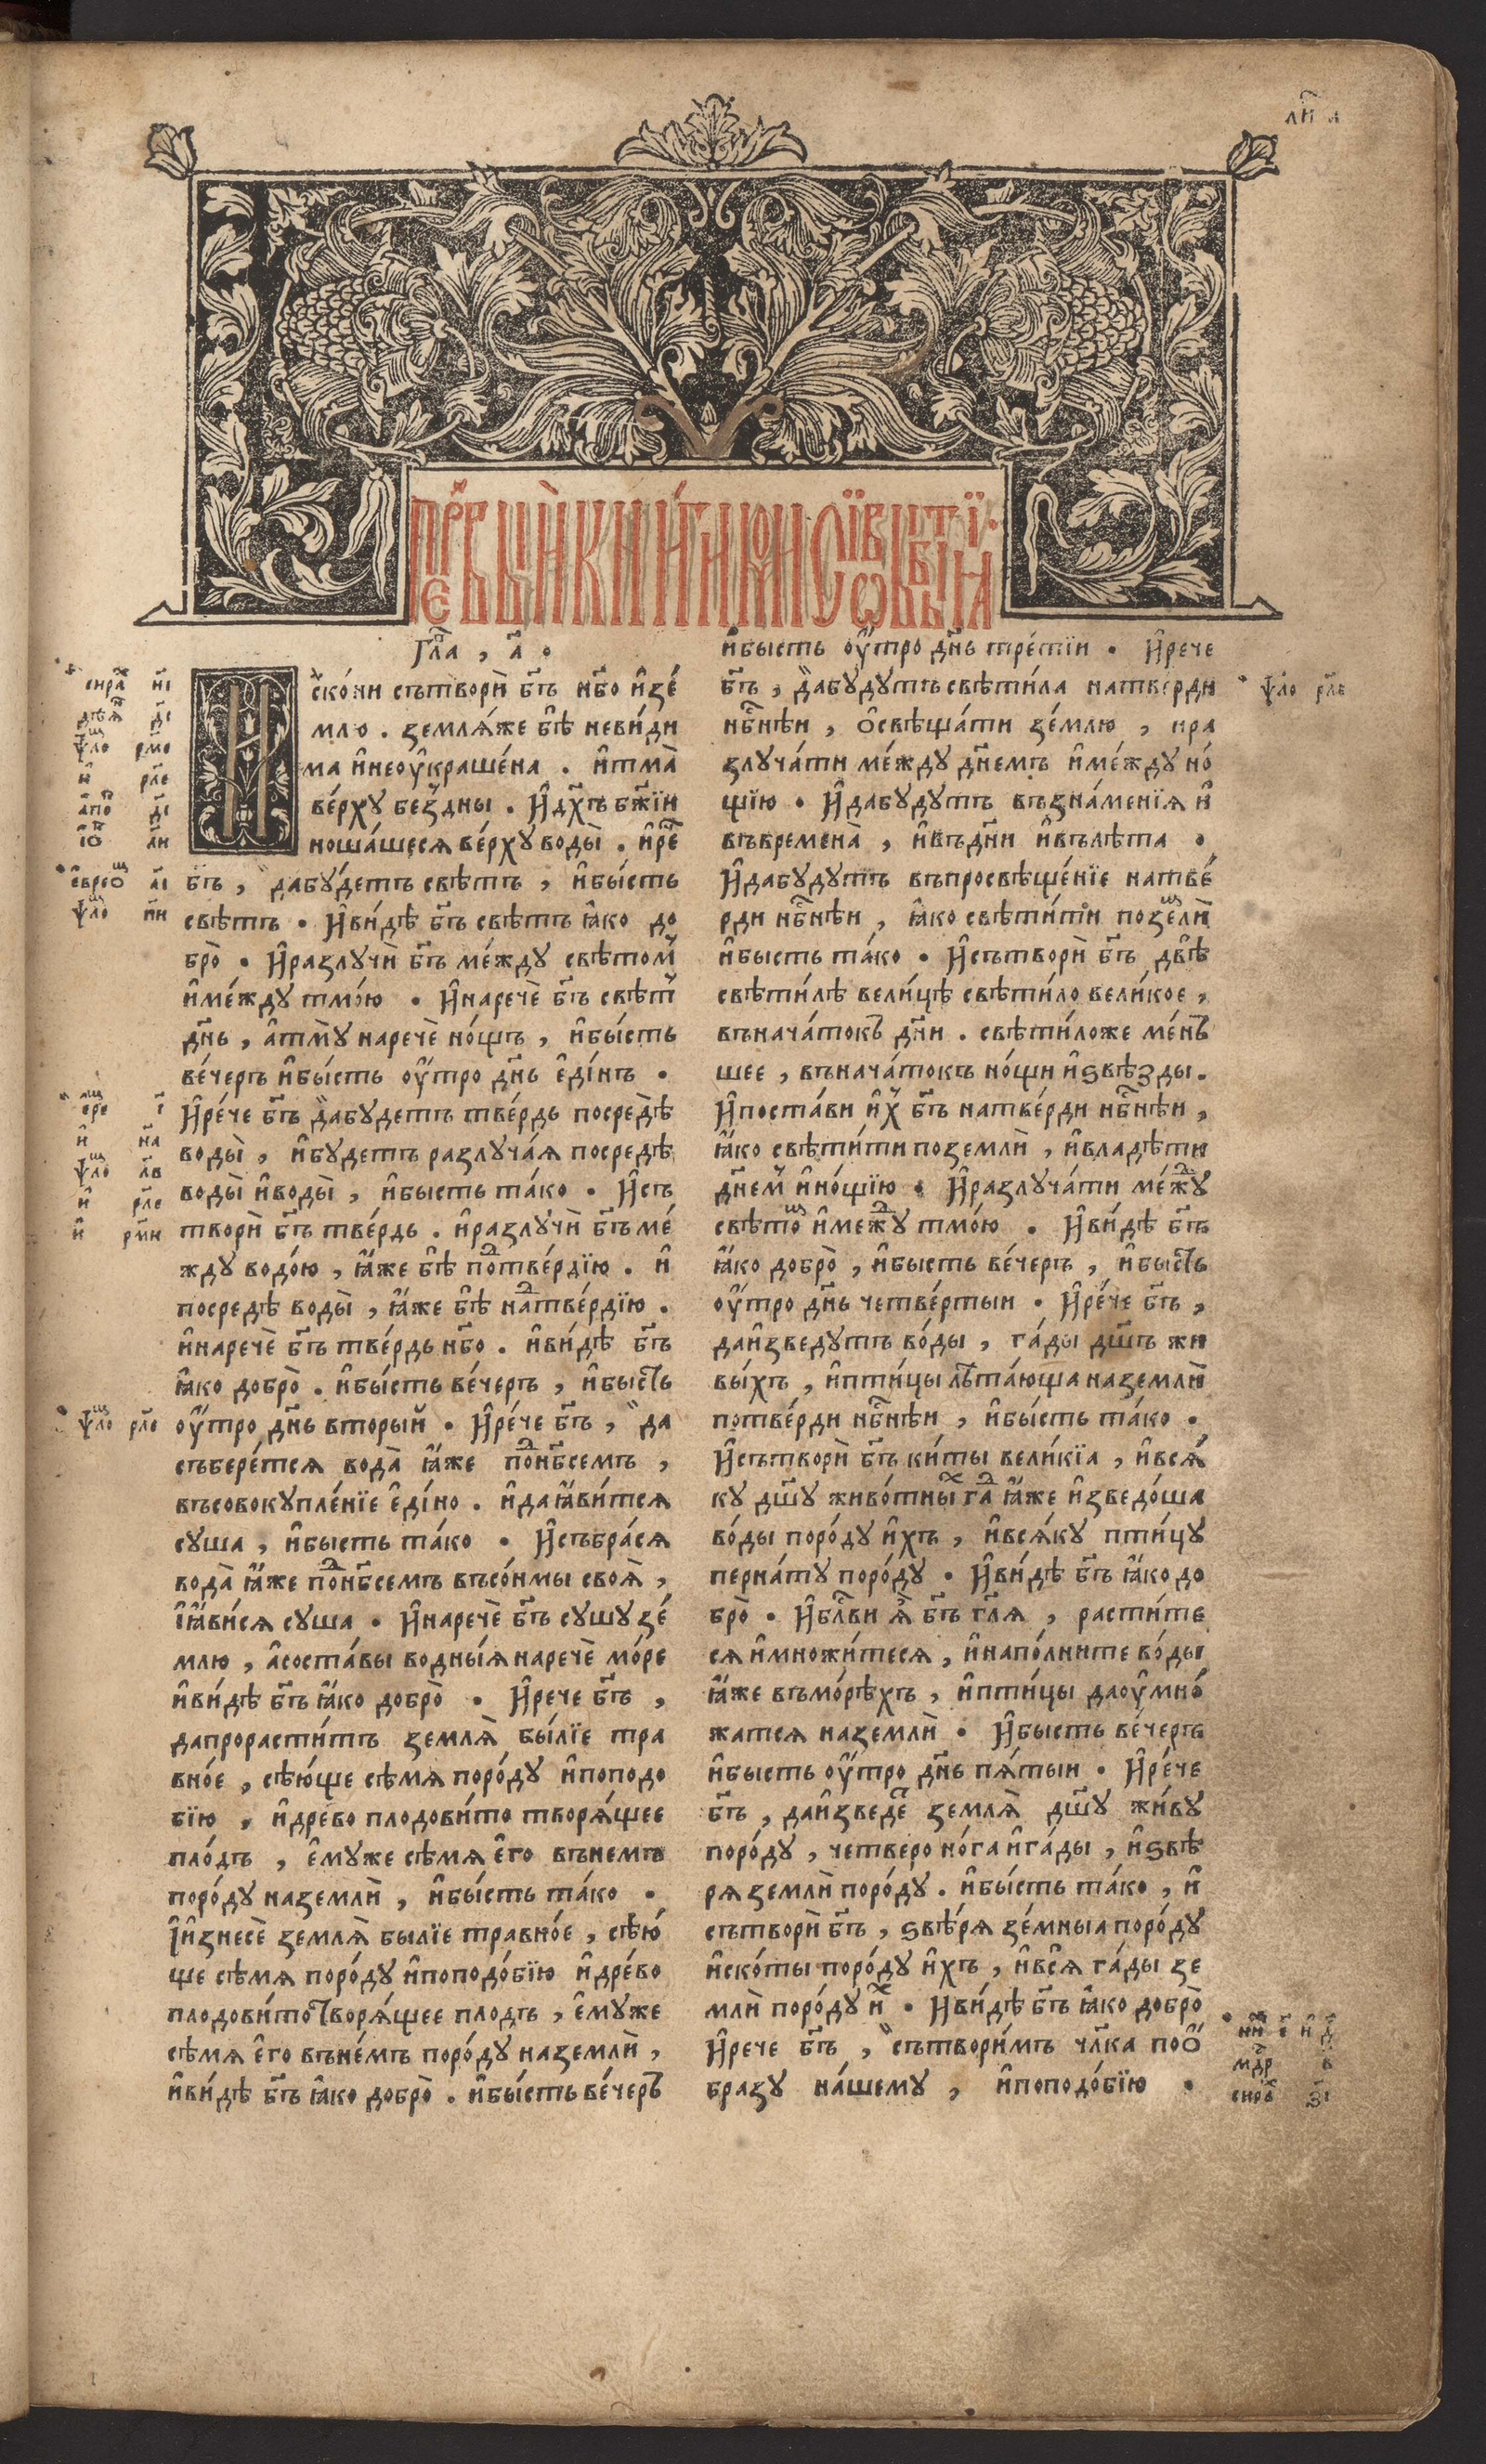 лиⷭ҇ а҃
Пе́рвыѧ кни́ги мѡисїѡвы бытїа̀
гла҃ , а҃ .
Искони̑ сътвори̑ бг҃ъ нб҃о и҆ зе́
млю . землѧ́же бѣ̀ неви́ди
ма и҆неоу҆кра́шена . и҆тма̀
ве́рху бе́здны . И҆дх҃ъ бж҃їи
ноша́шесѧ ве́рху воды̀ . и҆реч҃
бг҃ъ , дабу́детъ свѣтъ , и҆бы́сть
свѣтъ . И҆ви́дѣ бг҃ъ свѣтъ ꙗ҆́ко до
бро̀ . И҆разлучи̑ бг҃ъ ме́жду свѣтомⷨ
и҆ме́жду тмо́ю . И҆наречѐ бг҃ъ свѣтⷮ
дн҃ь , а҆тму̀ наречѐ но́щъ , и҆бы́сть
ве́черъ и҆бы́сть оу҆́тро дн҃ь е҆ди́нъ .
И҆ре́че бг҃ъ дабудетъ тве́рдь посредѣ̀
воды̀ , и҆будетъ разлуча́ѧ посредѣ̀
воды̀ и҆воды̀ , и҆бысть та́ко . И҆съ
твори̑ бг҃ъ тве́рдь . и҆разлучи̑ бг҃ъ ме́
жду водо́ю , ꙗ҆́же бѣ̀ поⷣтве́рдїю . и҆
посредѣ̀ воды̀ , ꙗ҆́же бѣ̀ наⷣтве́рдїю .
и҆наречѐ бг҃ъ тве́рдь нб҃о . и҆ви́дѣ бг҃ъ
ꙗ҆́ко добро̀ . и҆бы́сть ве́черъ , и҆бы́сть
оу҆́тро дн҃ь вторый . И҆ре́че бг҃ъ , да
събере́тсѧ вода̀ ꙗ҆́же поⷣнб҃семъ ,
въсовокупле́нїе е҆ди́но . и҆да ꙗ҆ви́тсѧ
суша , и҆бысть та́ко . И҆събра́сѧ
вода̀ ꙗ҆́же поⷣнб҃семъ въсо́нмы своѧ̀ ,
і҆ꙗ҆ви́сѧ суша . И҆наречѐ бг҃ъ сушу зе́
млю , а҆соста́вы водны́ѧ наречѐ мо́ре
и҆ви́дѣ бг҃ъ ꙗ҆́ко добро̀ . И҆рече бг҃ъ ,
дапрорасти́тъ землѧ̀ бы́лїе тра
вно́е , сѣ́юще сѣ́мѧ поро́ду и҆поподо
бїю , и҆древо плодови́то творѧ́щее
пло́дъ , е҆муже сѣ́мѧ е҆го въне́мъ
поро́ду наземли̑ , и҆бы́сть та́ко .
І҆и҆знесѐ землѧ̀ былїе травно́е , сѣ́ю
ще сѣ́мѧ поро́ду и҆поподо́бїю и҆дре́во
плодови́то творѧ́щее плодъ , е҆муже
сѣ́мѧ е҆го въне́мъ поро́ду наземли̑ ,
и҆ви́дѣ бг҃ъ ꙗ҆́ко добро̀ . и҆бы́сть ве́черъ
и҆бысть оу҆́тро дн҃ь тре́тїи . И҆рече
бг҃ъ , дабу́дутъ свѣти́ла натве́рди
нбⷭ҇нѣи , ѻ҆свѣща́ти зе́млю , ира
злуча́ти ме́жду дн҃емъ и҆ме́жду но́
щїю . И҆дабудутъ възна́менїѧ и҆
въвремена̀ , и҆въдн҃и и҆вълѣ́та .
И҆дабудутъ въпросвѣще́нїе натве́
рди нбⷭ҇нѣи , ꙗ҆́ко свѣти́ти поземли̑
и҆бысть та́ко . И҆сътвори̑ бг҃ъ двѣ̀
свѣти́лѣ вели́цѣ свѣти́ло вели́кое ,
въначатокъ дн҃и . свѣти́ложе ме́нъ
шее , въначатокъ но́щи и҆ѕвѣ́зды .
И҆поста́ви и҆хⷯ бг҃ъ натве́рди нбⷭ҇нѣи ,
ꙗ҆́ко свѣти́ти поземли̑ , и҆владѣ́ти
дн҃емⷨ и҆но́щїю . И҆разлуча́ти меⷤду
свѣтоⷨ и҆меⷤду тмо́ю . И҆ви́дѣ бг҃ъ
ꙗ҆́ко добро̀ , и҆бысть ве́черъ , и҆бысть
оу҆́тро дн҃ь четве́ртыи . И҆ре́че бг҃ъ ,
даи҆зведутъ во́ды , га́ды дш҃ъ жи
вы́хъ , и҆пти́цы лѣта́юща наземли̑
потве́рди нбⷭ҇нѣи , и҆бы́сть та́ко .
И҆сътвори̑ бг҃ъ ки́ты вели́кїа , и҆всѧ́
ку дш҃у живо́тныⷯ гаⷣ ꙗ҆́же и҆зведо́ша
во́ды поро́ду и҆хъ , и҆всѧ́ку пти́цу
перна́ту поро́ду . И҆ви́дѣ бг҃ъ ꙗ҆́ко до
бро̀ . И҆блⷭ҇ви ѧ҆̀ бг҃ъ гл҃ѧ , расти́те
сѧ и҆множи́тесѧ , и҆напо́лните во́ды
ꙗ҆́же въмо́рѣхъ , и҆пти́цы даоу҆мно́
жатсѧ наземли̑ . И҆бысть ве́черъ
и҆бысть оу҆́тро дн҃ь пѧ́тыи . И҆ре́че
бг҃ъ , даи҆зведеⷮ землѧ̀ дш҃у жи́ву
поро́ду , четверо но́га и҆га́ды , и҆ѕвѣ
рѧ земли̑ поро́ду . и҆бы́сть та́ко , и҆
сътвори̑ бг҃ъ , ѕвѣ́рѧ зе́мныа поро́ду
и҆ско́ты поро́ду и҆хъ , и҆всѧ̀ га́ды зе
мли̑ поро́ду иⷯ . И҆ви́дѣ бг҃ъ ꙗ҆́ко добро̀
И҆рече бг҃ъ , сътвори́мъ чл҃ка поѻ҆́
бразу на́шему , и҆поподо́бїю .
сираⷯ и҃і
дѣѧⷩ҇ д҃і
ѱаⷧо рм҃ѳ
и҆ рл҃е
а҆по д҃і
і҆ѡⷡ л҃и
е҆вреѡⷨ а҃і
ѱаⷧо
е҆ре і҃
и҆ н҃а
ѱаⷧо л҃в
и҆ рл҃е
и҆ рм҃и
ѱаⷧо рл҃е
ѱаⷧо рл҃е
ни е҃ и҆ д҃
мдⷬ в҃
сираⷯ з҃і